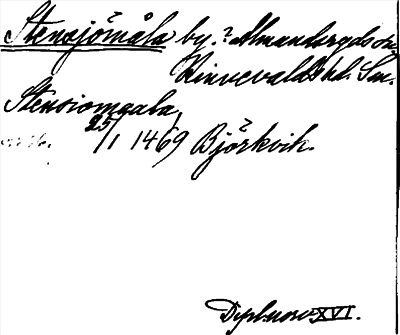 Stensjömåla by. ? Almundsryds sn.
Kinnevalds hd. Sm.
Stensiomaala
25/1 1469 Björkvik.
Dipl. norv. XVI.